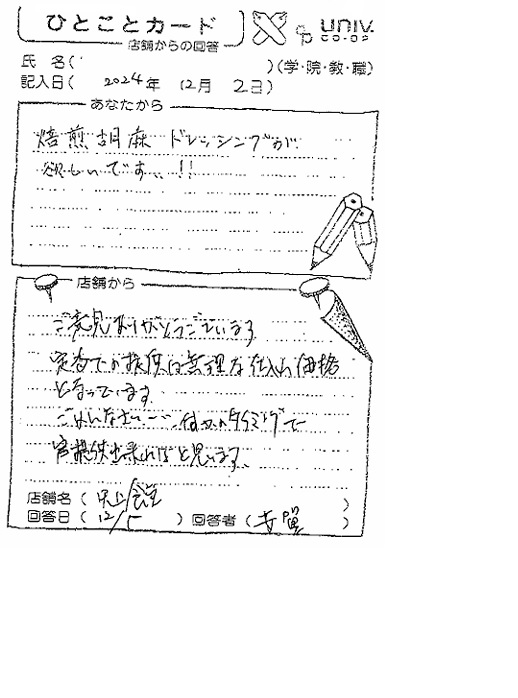 ひとことカード
UNIV.
CO-OP
店舗からの回答
氏 名( )(学・院・教・職)
記入日( 2024年 12月 2日)
あなたから
焙煎胡麻ドレッシングが
欲しいです、!!
店舗から
ご意見ありがとうございます
定番での提供は無理な仕入れ価格
となっています。
ごめんなさい…、何かのタイミングで
提供出来ればと思います。
店舗名( 食堂 )
回答日( 12/5 ) 回答者( )